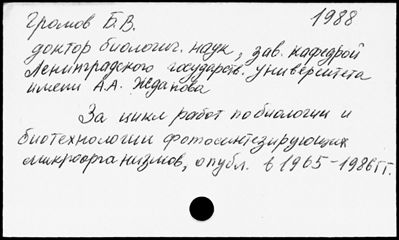 Громов Б.В. 1988
доктор биологич. наук, зав. кафедрой
Ленинградского государств. университета
имени А.А. Жданова
За цикл работ по биологии и
биотехнологии фотосинтезирующих
микроорганизмов, опубл. в 1965-1986гг.